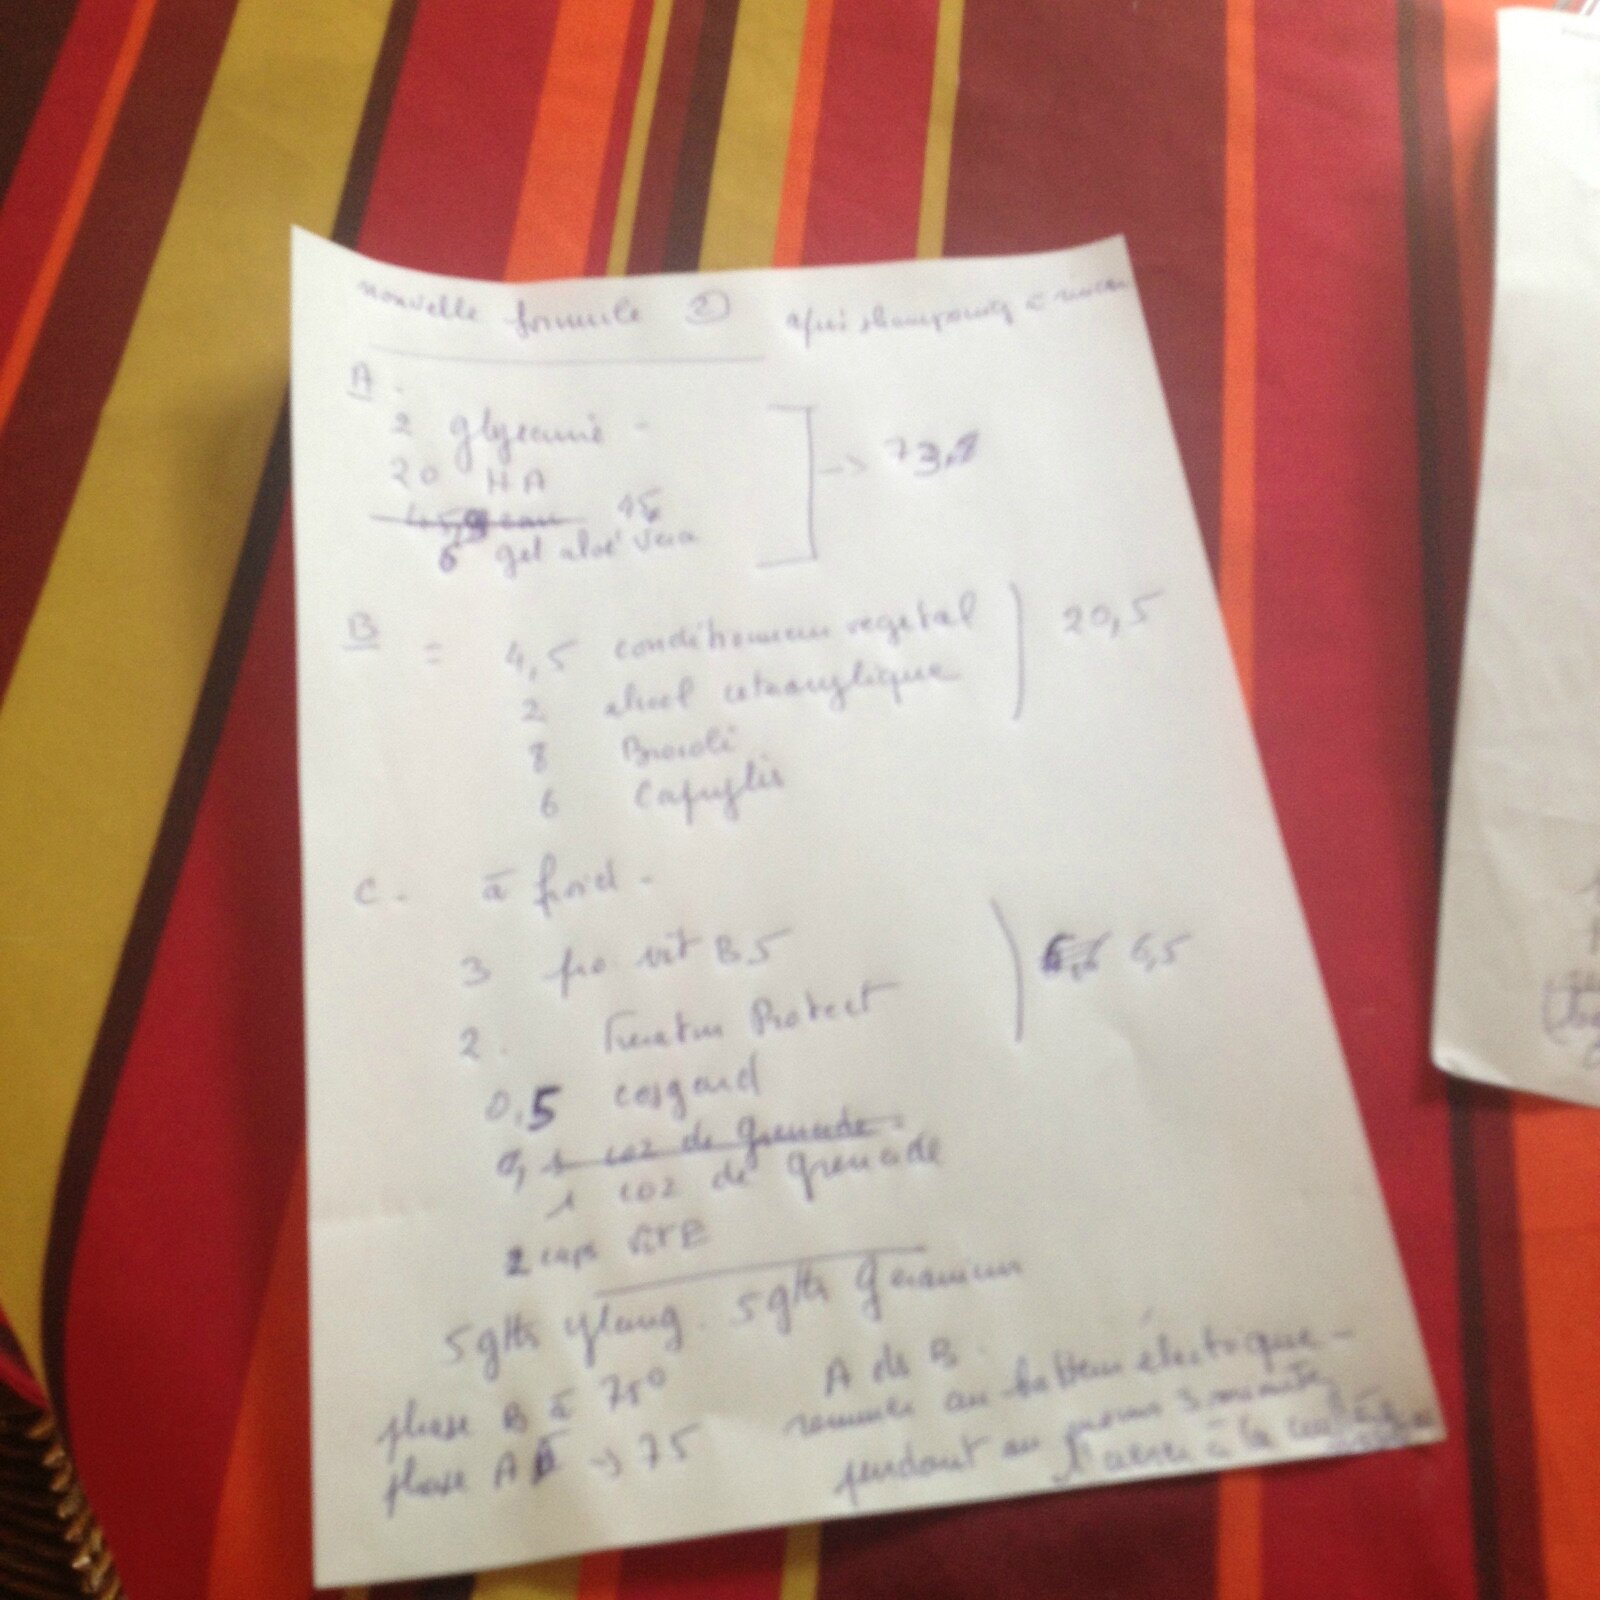 nouvelle formule 2 après shampooing
A.
2 glycerine -
20 HA
45,9 eau 45
6 gel aloe vera
-> 73,
B = 4,5 conditionneur vegetal
20,5
2 alcool cetearylique
8 Brocoli
6 Capuylis
C. à froid -
3 pro vit B5
2. Keratin Protect
6,5
0,5 cosgard
0,1 co2 de grenade
1 co2 de grenade
2 caps Vit E
5 gttes ylang. 5 gttes Geranium
phase B à 75°
phase A -> 75
A ds B.
au batteur électrique -
pendant au moins 3 minutes
à la